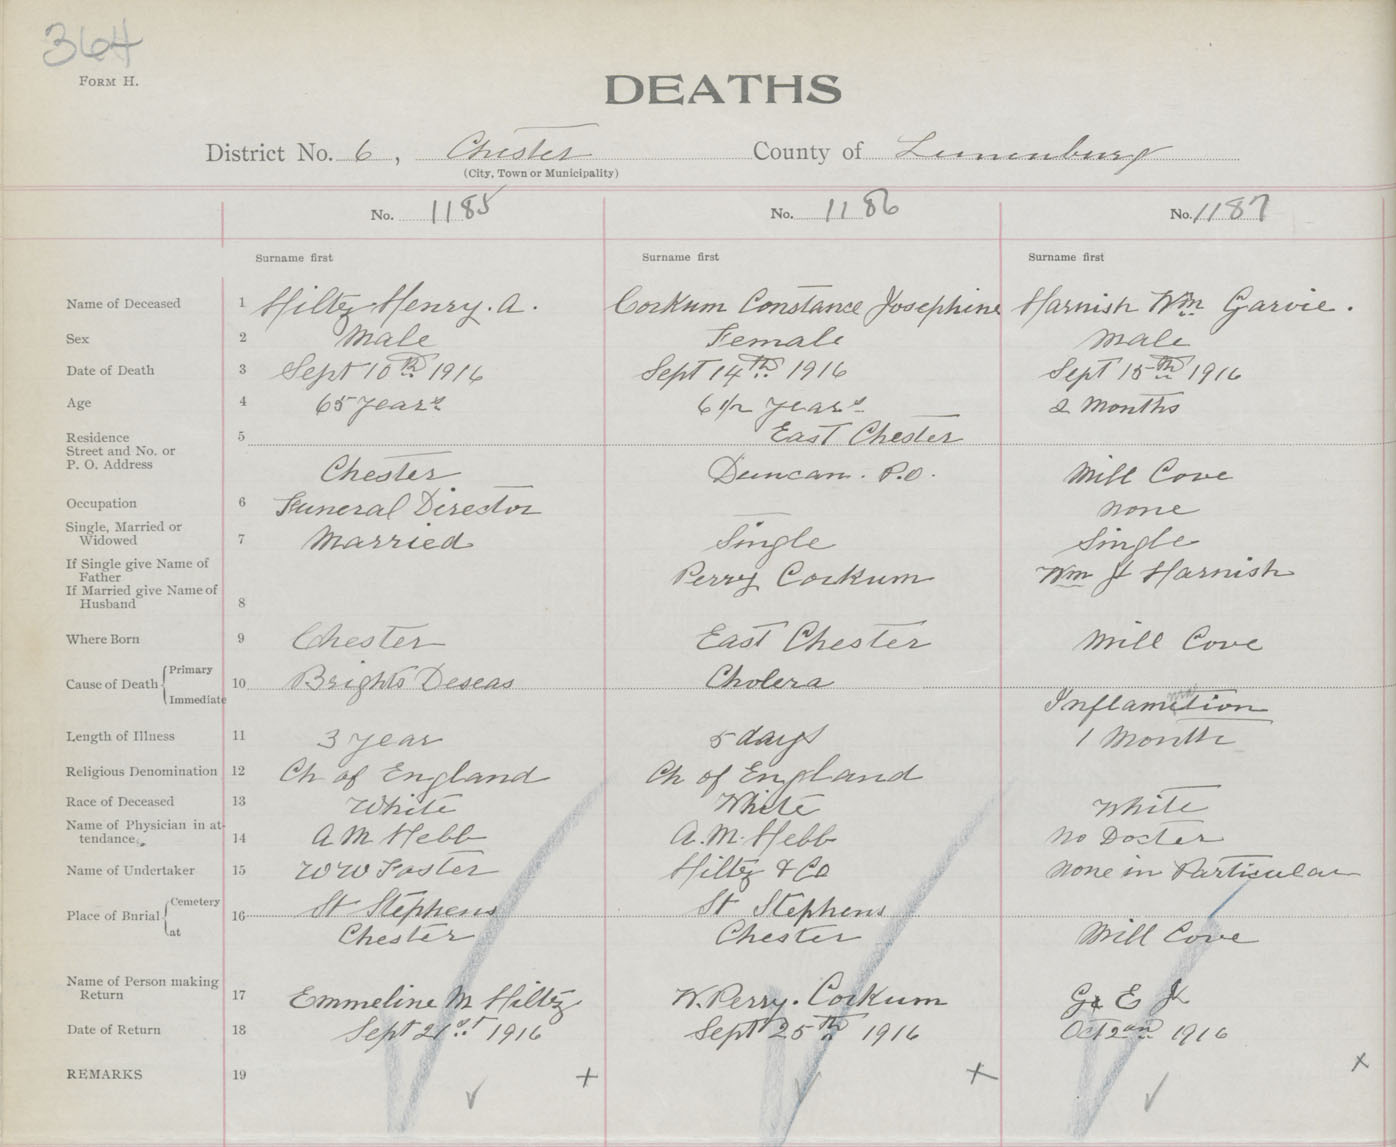 364
FORM H.
DEATHS
District No. 6, Chester County of Lunenburg
(City, Town or Municipality)
No. 1185 No. 1186 No. 1187
Surname first Surname first Surname first
Name of Deceased 1 Hiltz Henry. A. Corkum Constance Josephine Harnish Wm Garvie.
Sex 2 Male Female Male
Date of Death 3 Sept 10th 1916 Sept 14th 1916 Sept 15th 1916
Age 4 65 years 6 1/2 years 2 Months
Residence 5 East Chester
Street and No. or
P. O. Address Chester Duncan. P.O. Mill Cove
Occupation 6 Funeral Director none
Single, Married or
Widowed 7 Married Single Single
If Single give Name of
Father Perry Corkum Wm J Harnish
If Married give Name of
Husband 8
Where Born 9 Chester East Chester Mill Cove
Cause of Death Primary 10 Brights Deseas Cholera
Immediate Inflamation
Length of Illness 11 3 year 5 days 1 Month
Religious Denomination 12 Ch of England Ch of England
Race of Deceased 13 White White White
Name of Physician in at-
tendance. 14 A M Hebb A. M. Hebb No Docter
Name of Undertaker 15 W W Foster Hiltz & Co none in Particular
Place of Burial Cemetery 16 St Stephens St Stephens
at Chester Chester Mill Cove
Name of Person making
Return 17 Emmeline M Hiltz W. Perry. Corkum
Date of Return 18 Sept 21st 1916 Sept 25th 1916 Oct 2nd 1916
REMARKS 19 + + x